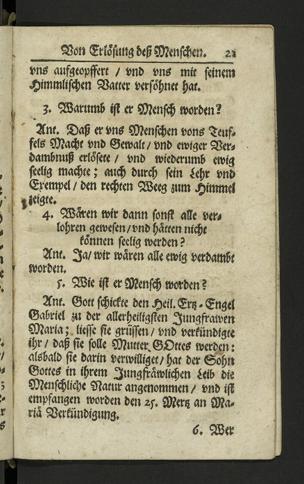 Von Erlösung deß Menschen. 21
vns aufgeopffert / vnd vns mit seinem
Himmlischen Vatter versöhnet hat.
3. Warumb ist er Mensch worden?
Ant. Daß er vns Menschen vons Teuf-
fels Macht vnd Gewalt / vnd ewiger Ver-
dambnuß erlösete / vnd wiederumb ewig
seelig machte; auch durch sein Lehr vnd
Exempel / den rechten Weeg zum Himmel
zeigte.
4. Wären wir dann sonst alle ver-
lohren gewesen / vnd hätten nicht
können seelig werden?
Ant. Ja / wir wären alle ewig verdambt
worden.
5. Wie ist er Mensch worden?
Ant. Gott schickte den Heil. Ertz-Engel
Gabriel zu der allerheiligsten Jungfrawen
Maria; liesse sie grüssen / vnd verkündigte
ihr / daß sie solle Mutter GOttes werden:
alsbald sie darin verwilliget / hat der Sohn
Gottes in ihrem Jungfräwlichen Leib die
Menschliche Natur angenommen / vnd ist
empfangen worden den 25. Mertz an Ma-
riä Verkündigung.
6. Wer